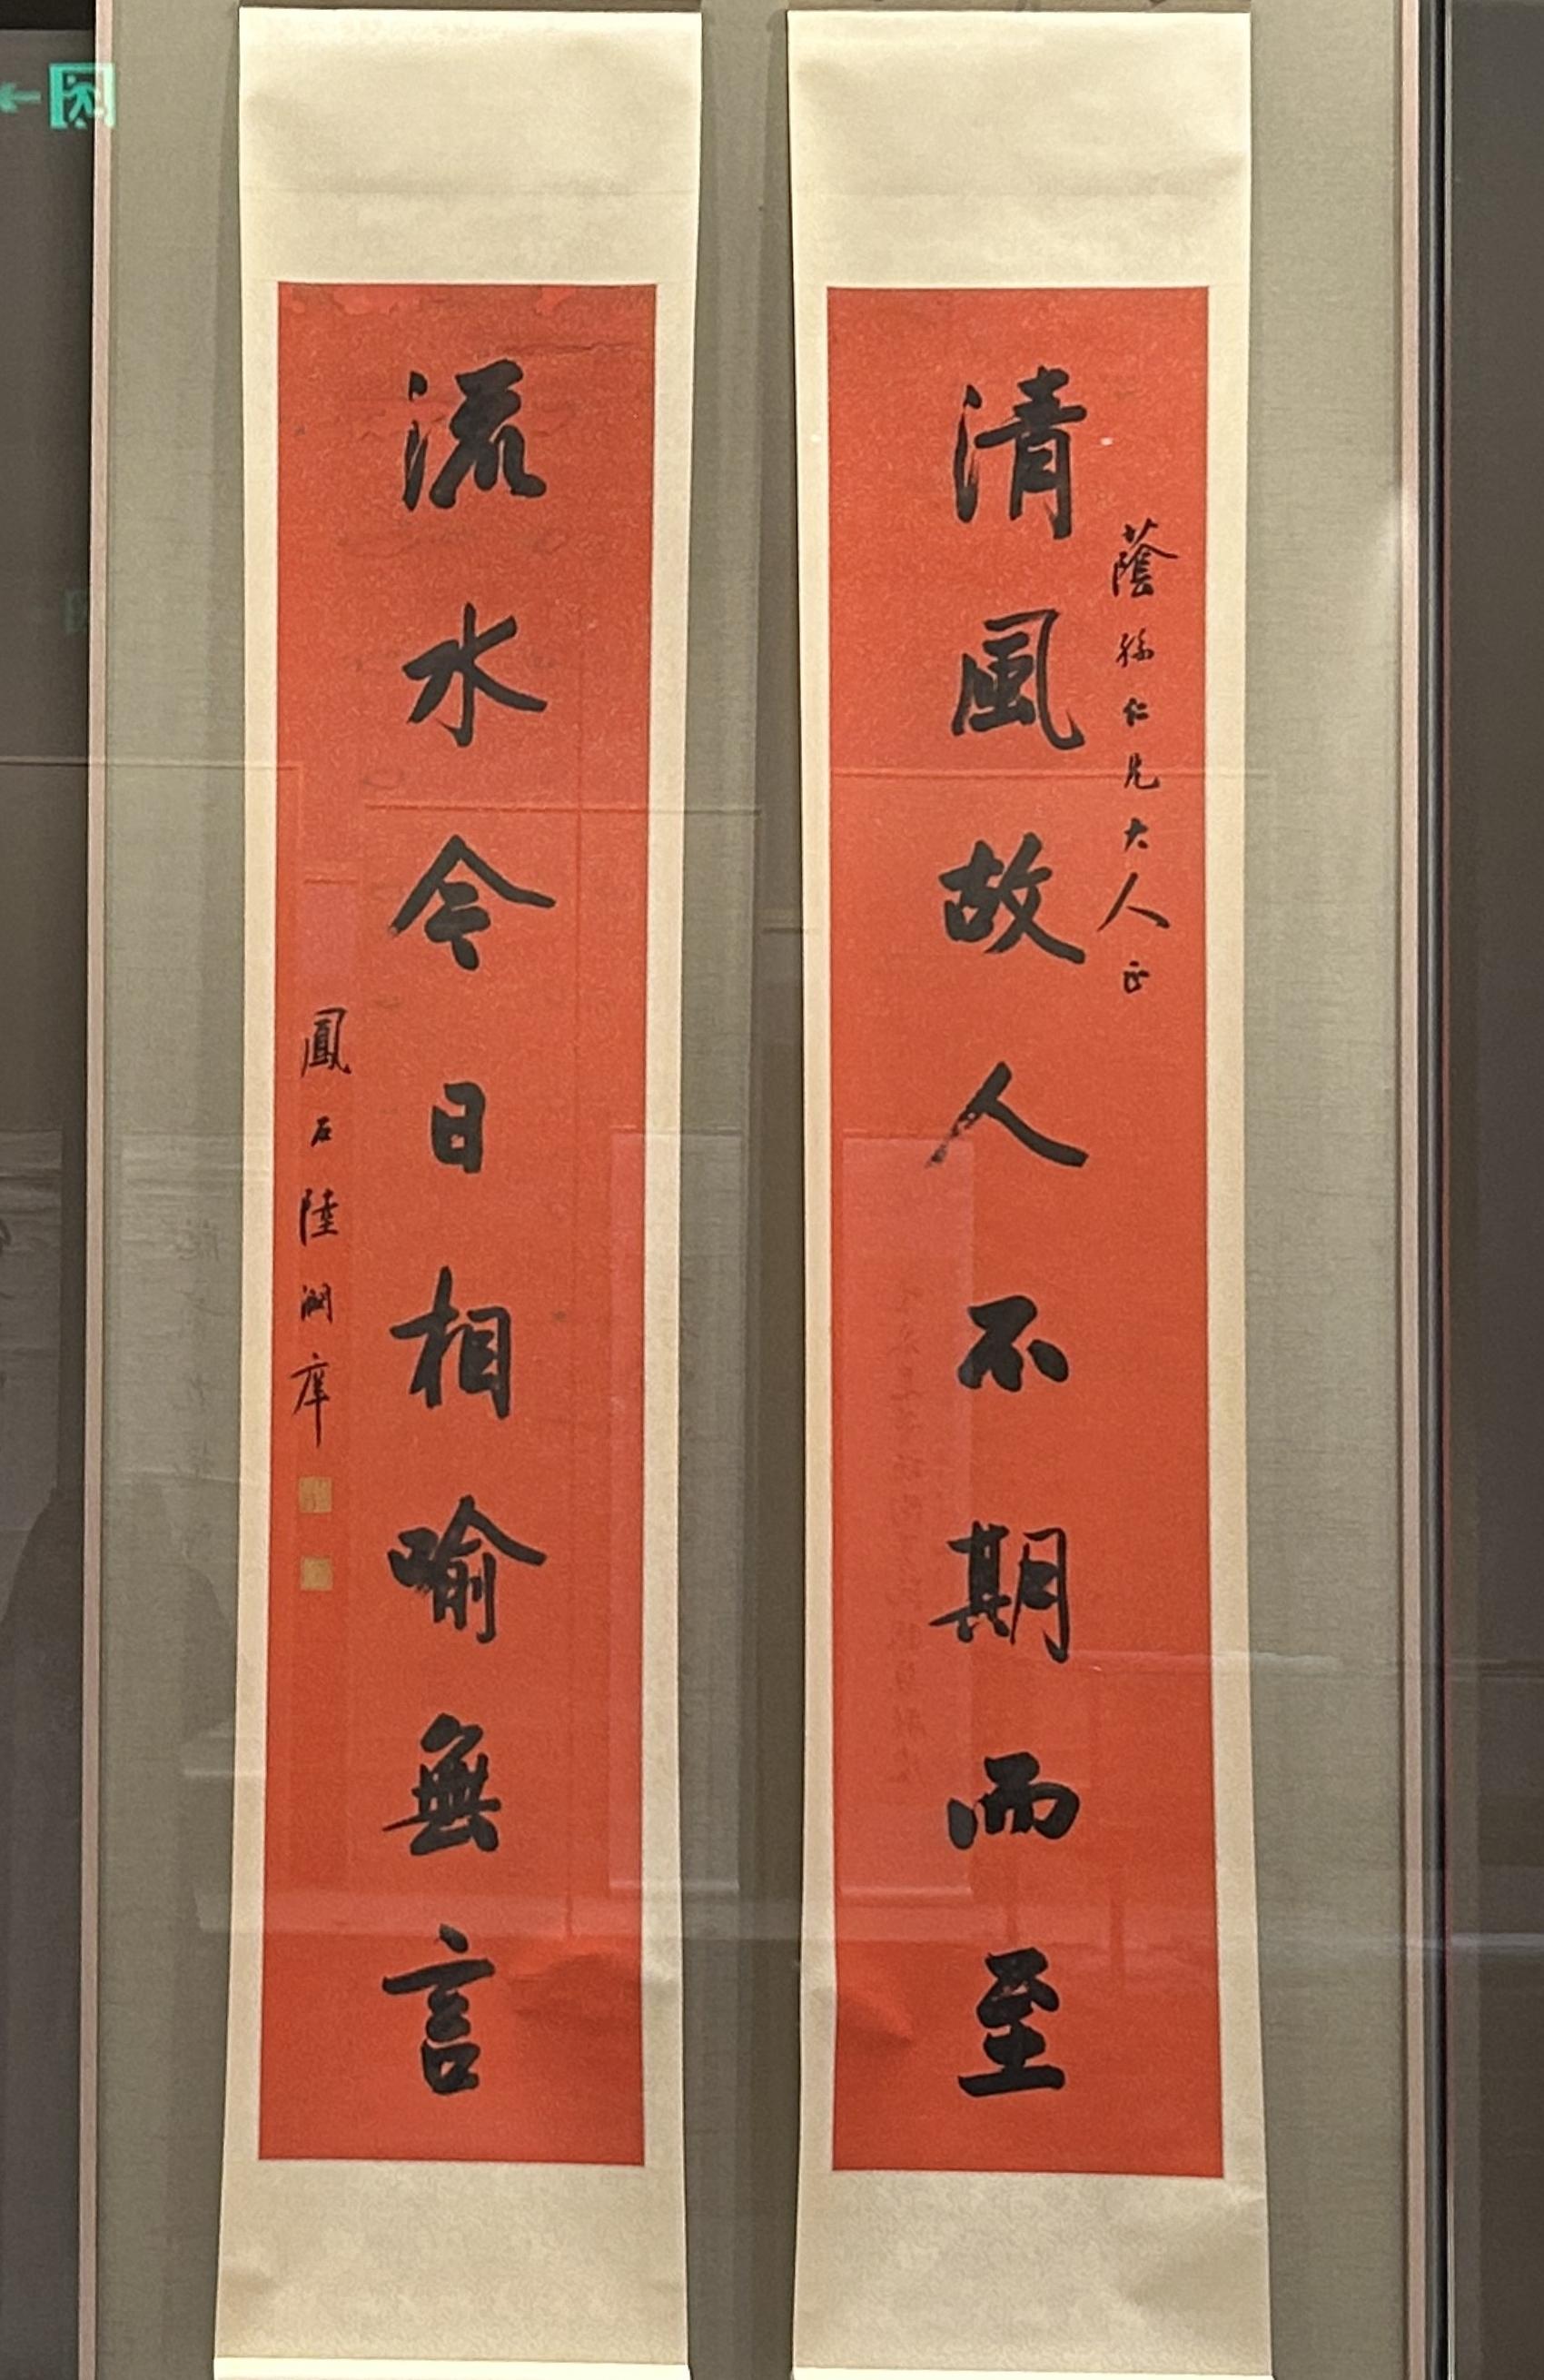 蔭孫仁兄大人正
清風故人不期而至
流水令日相喻無言
鳳石陸潤庠